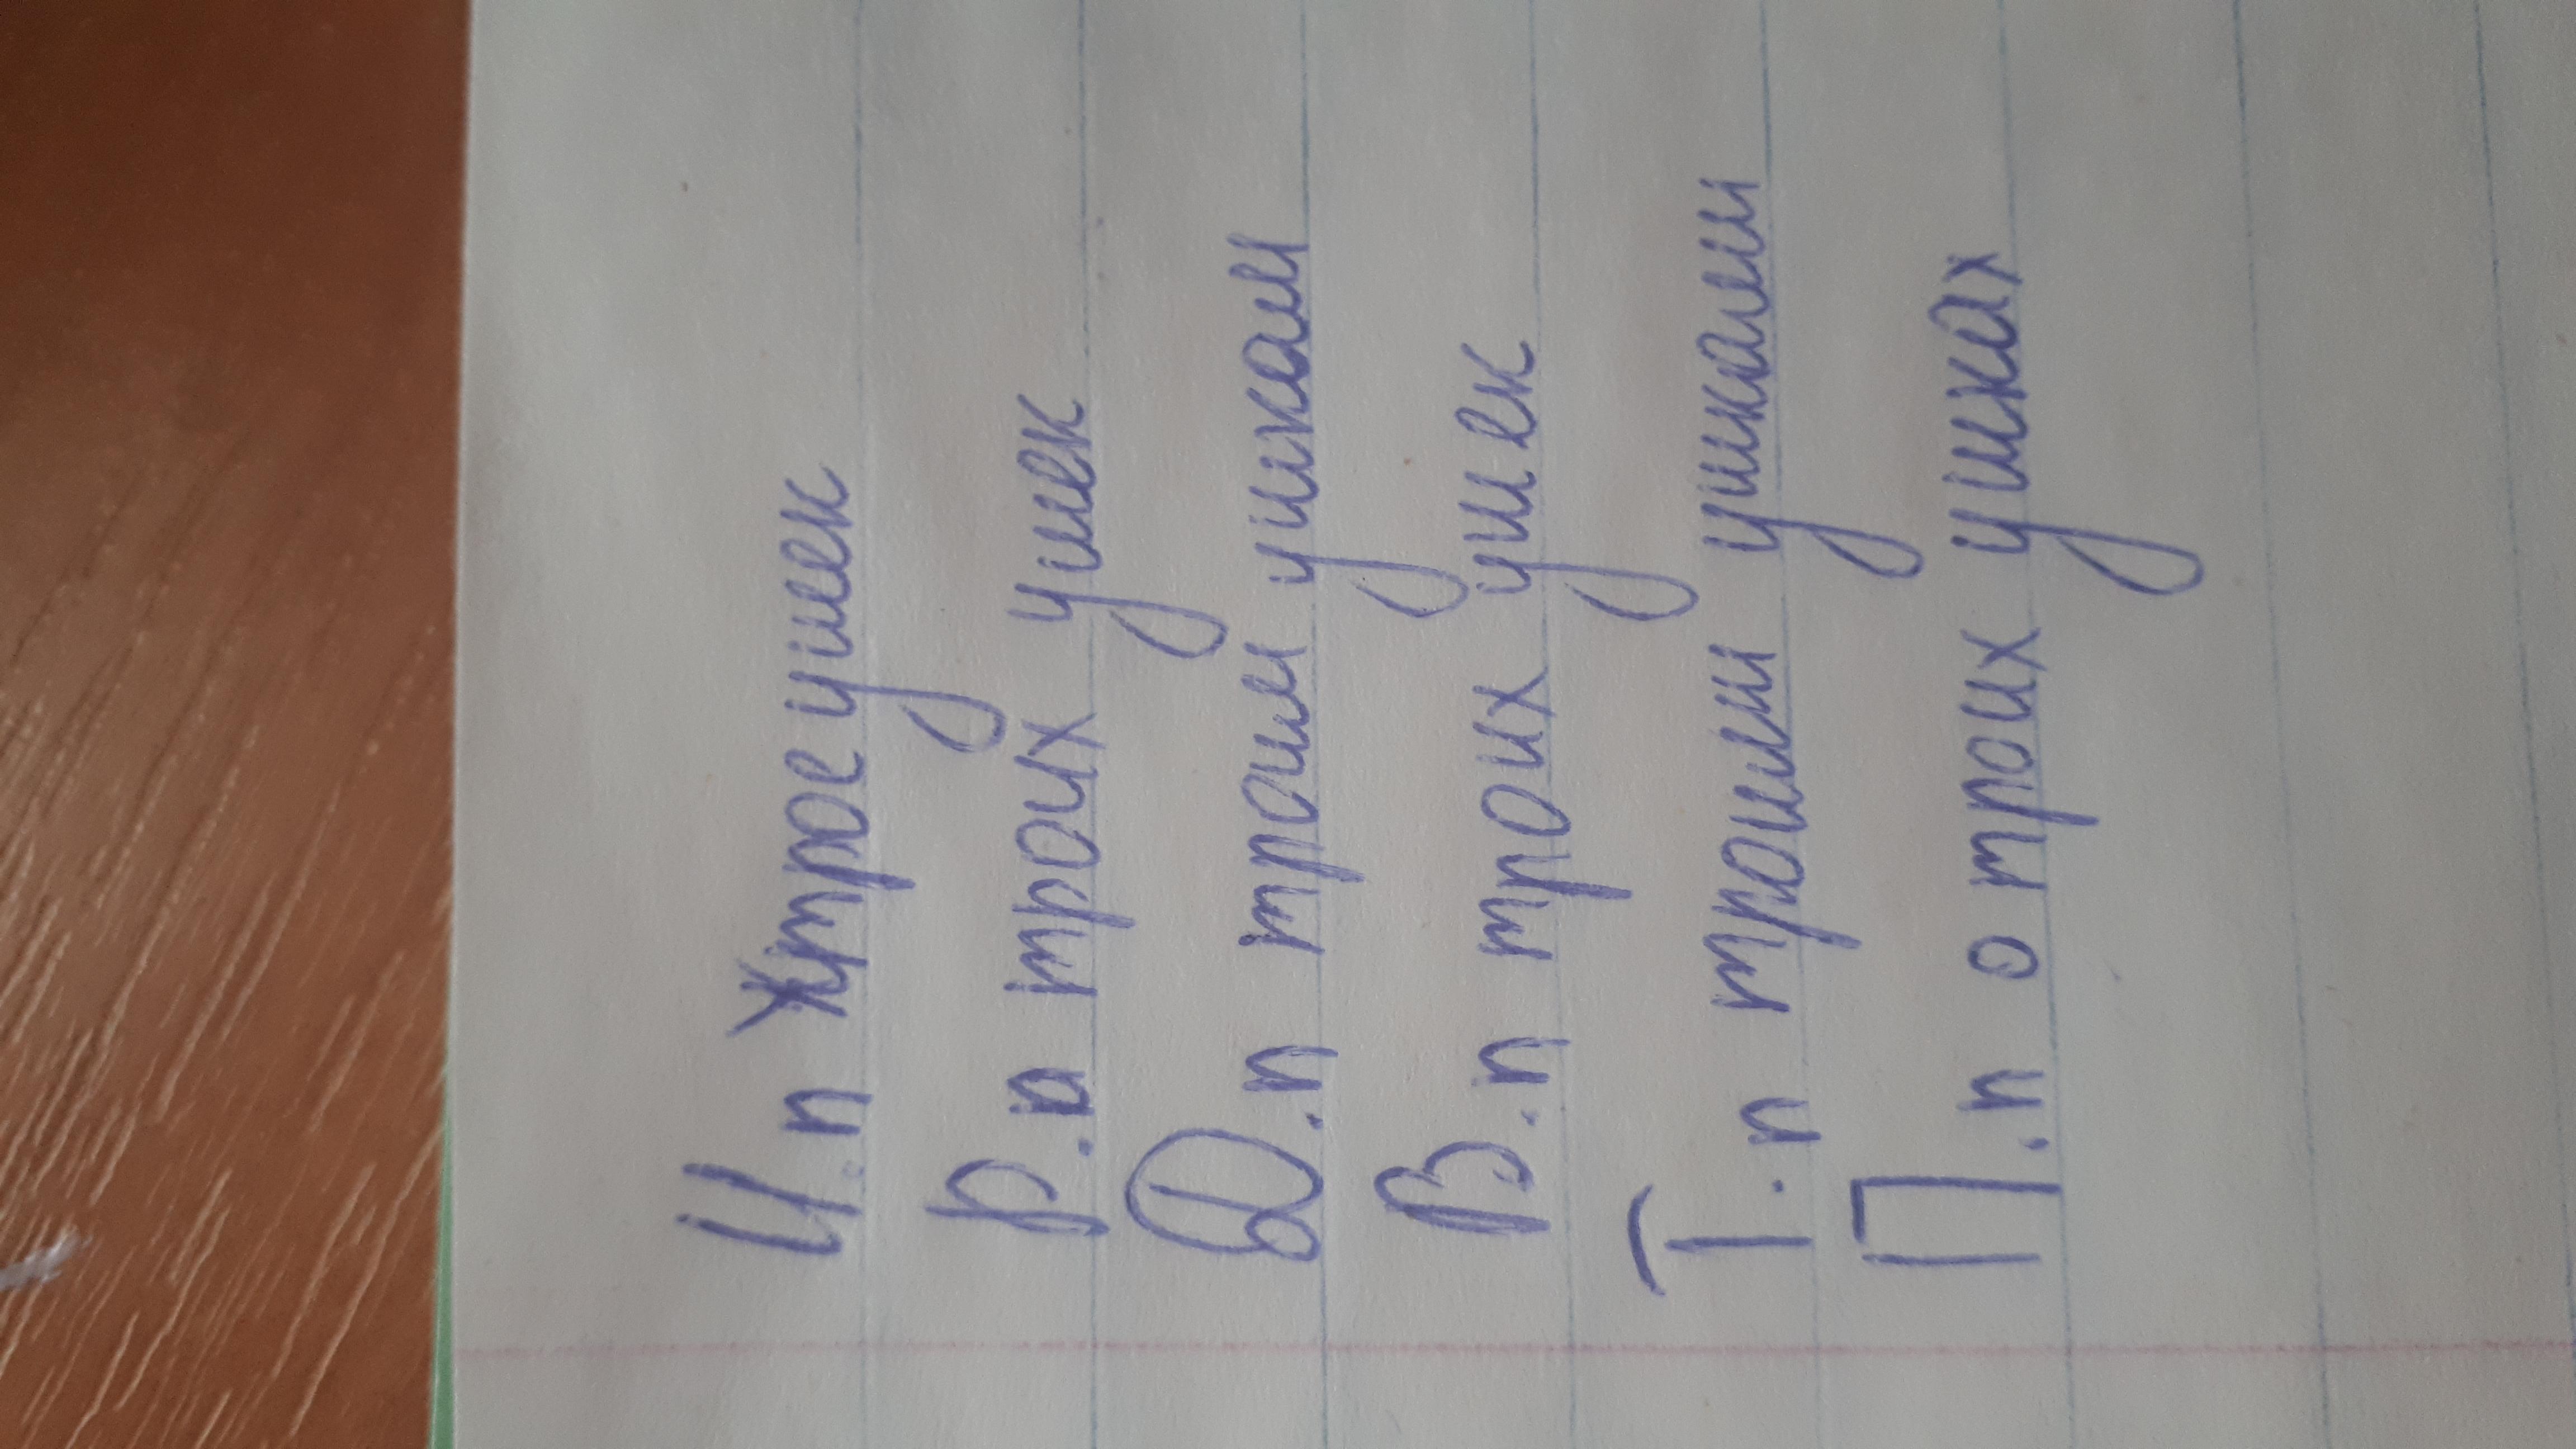 И.п трое ушек
Р.п троих ушек
Д.п троим ушкам
В.п троих ушек
Т.п троими ушками
П.п о троих ушках